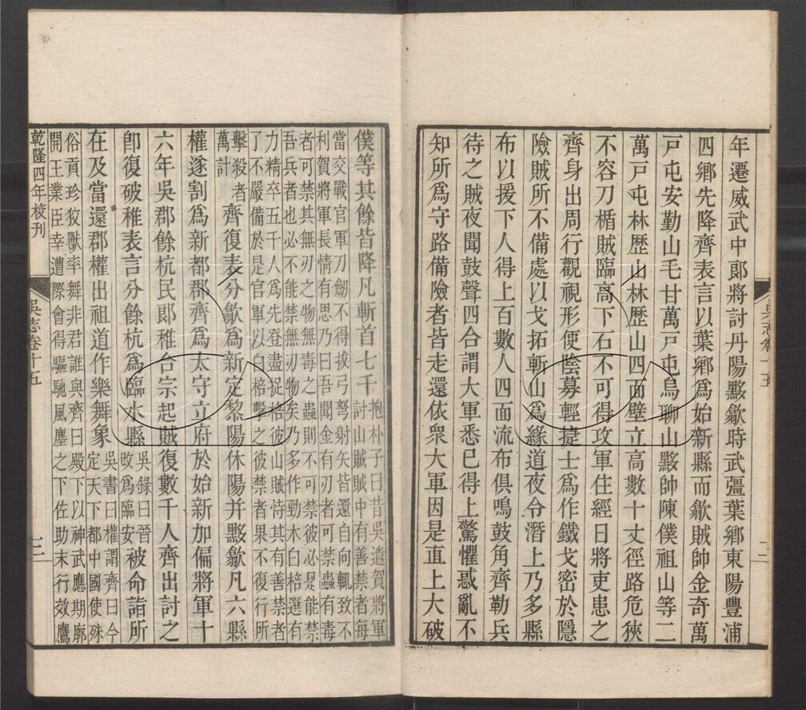 年遷威武中郎將討丹陽黟歙時武彊葉鄉東陽豐浦
四鄉先降齊表言以葉鄉為始新縣而歙賊帥金奇萬
戸屯安勤山毛甘萬戸屯烏聊山黟帥陳僕祖山等二
萬戸屯林歷山林歷山四面壁立高數十丈徑路危狹
不容刀楯賊臨高下石不可得攻軍住經日將吏患之
齊身出周行觀視形便陰募輕捷士為作鐵戈密於隱
險賊所不備處以戈拓斬山為緣道夜令潛上乃多縣
布以援下人得上百數人四面流布俱鳴鼓角齊勒兵
待之賊夜聞鼓聲四合謂大軍悉已得上驚懼惑亂不
知所為守路備險者皆走還依衆大軍因是直上大破
僕等其餘皆降凡斬首七千抱朴子曰昔吳遣賀將軍討山賊賊中有善禁者每
當交戰官軍刀劒不得拔弓弩射矢皆還自向輒致不
利賀將軍長情有思乃曰吾聞金有刃者可禁蟲有毒
者可禁其無刃之物無毒之蟲則不可禁彼必是能禁
吾兵者也必不能禁無刃物矣乃多作勁木白棓選有
力精卒五千人為先登盡捉棓彼山賊恃其有善禁者
了不嚴備於是官軍以白棓擊之彼禁者果不復行所
擊殺者萬計齊復表分歙為新定黎陽休陽并黟歙凡六縣
權遂割為新都郡齊為太守立府於始新加偏將軍十
六年吳郡餘杭民郎稚合宗起賊復數千人齊出討之
卽復破稚表言分餘杭為臨水縣吳錄曰晉改為臨安被命詣所
在及當還郡權出祖道作樂舞象吳書曰權謂齊曰今定天下都中國使殊
俗貢珍狡獸率舞非君誰與齊曰殿下以神武應期廓
開王業臣幸遭際會得驅馳風塵之下佐助末行效鷹
乾隆四年校刊
吳志卷十五
三